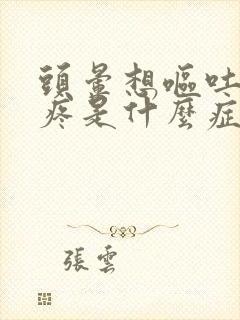 頭暈想嘔吐
疼是什麼症
張雲